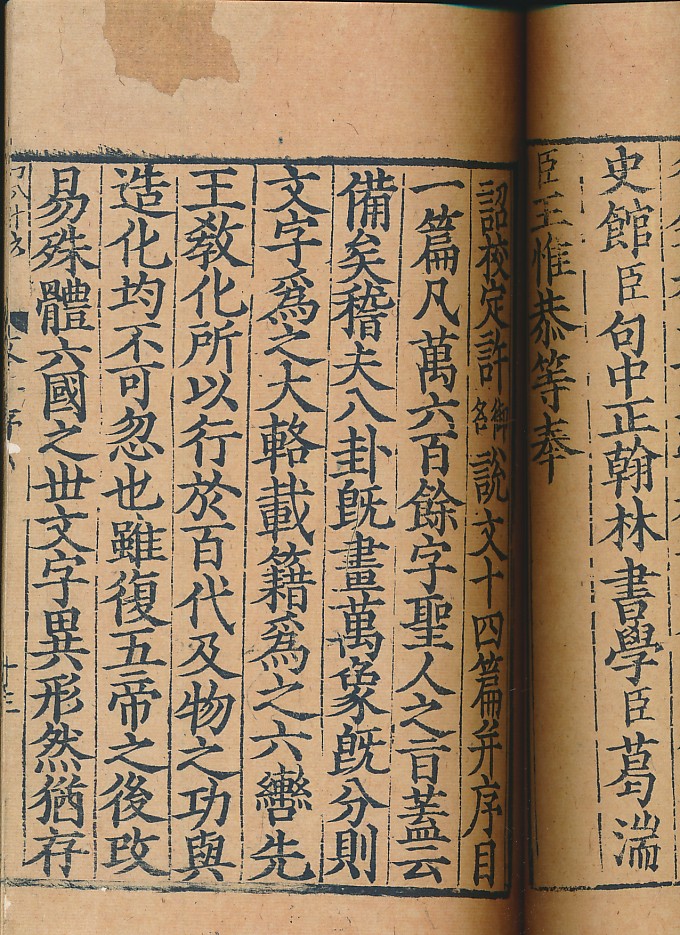 史館臣句中正翰林書學臣葛湍
臣王惟恭等奉
詔校定許御名說文十四篇并序目
一篇凡萬六百餘字聖人之旨葢云
備矣稽夫八卦旣畫萬象旣分則
文字爲之大輅載籍爲之六轡先
王敎化所以行於百代及物之功與
造化均不可忽也雖復五帝之後改
易殊體六國之丗文字異形然猶存